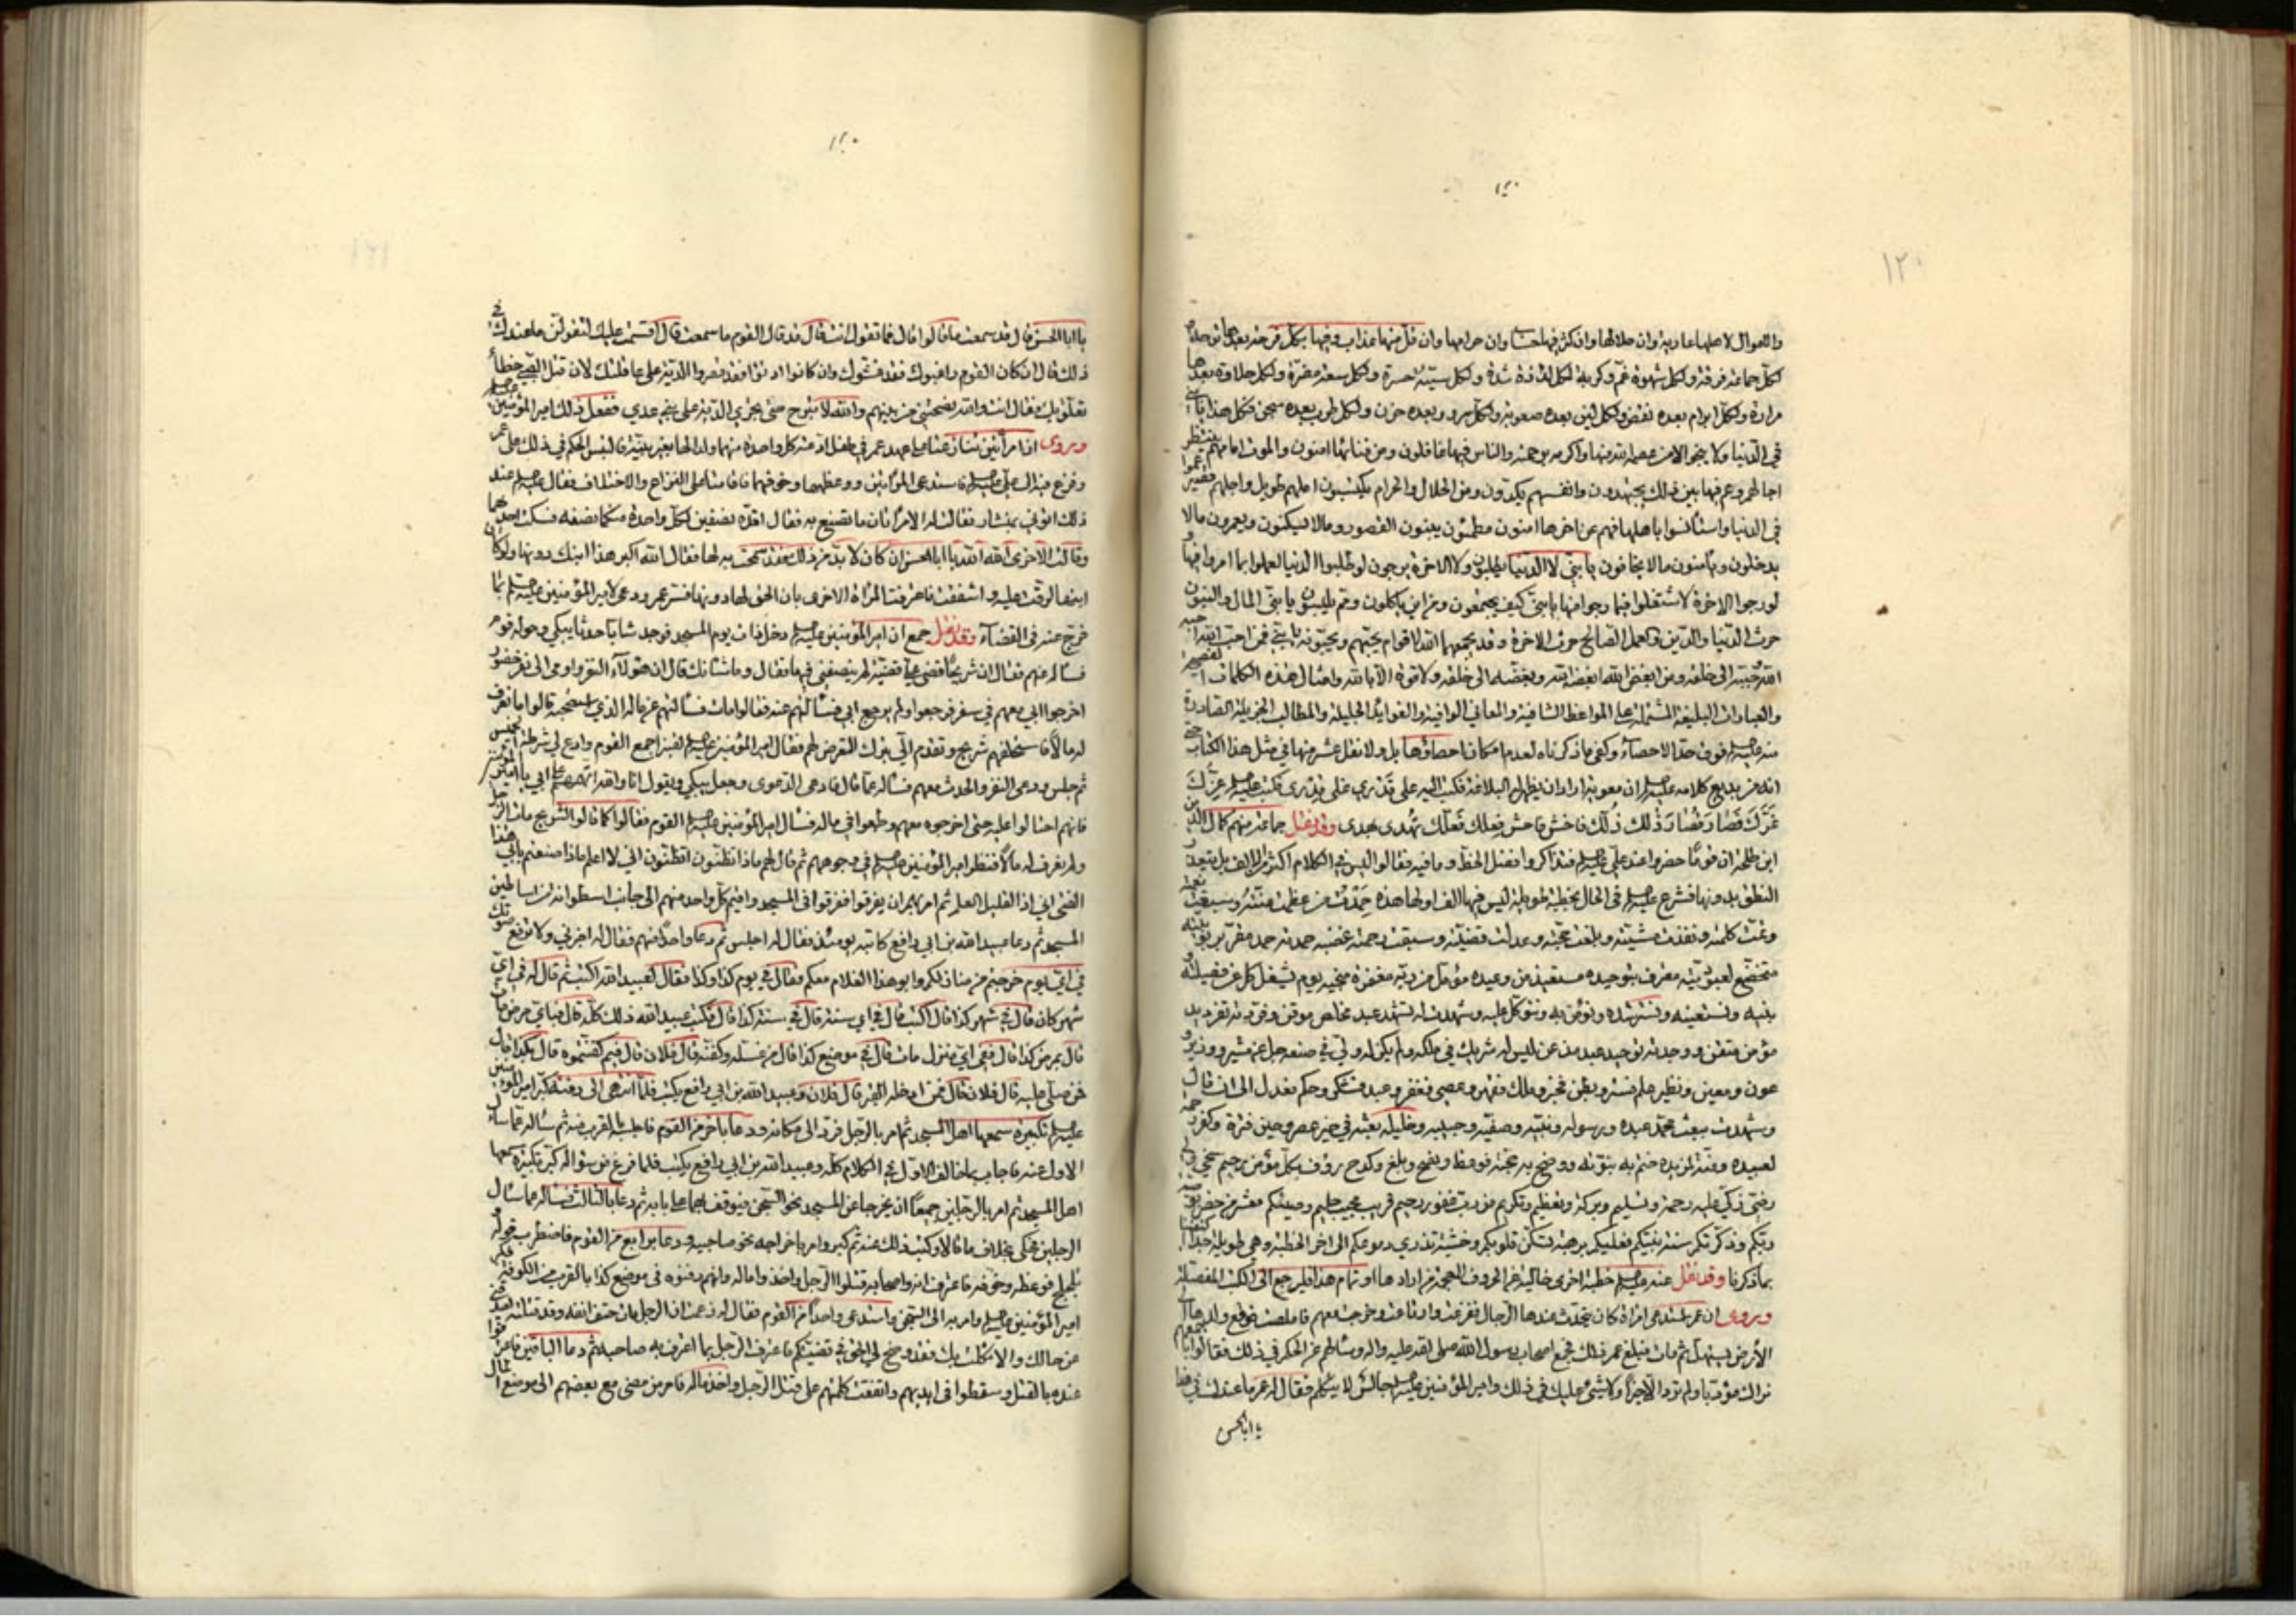 ١٢٠
١٢٠
والاموال لاهلها عارية وان حلالها وان كثر فيها حساب وان حرامها وان قل منها عذاب وفيها بكل فرحة
لكل جماعة فرقة ولكل شهوة غم وكربة لكل لذاذة شدة ولكل سيئة حسرة ولكل سعة مضرة ولكل حلاوة بعدها
مرارة ولكل ابرام بعده نقض ولكل لين بعده صعوبة ولكل سرور بعده حزن ولكل طرب بعده سجن فكل هذا يا بني
في الدنيا ولا ينجو الا من عصمه الله منها واكرمه برحمته والناس فيها غافلون ومن فنائها امنون والموت امامهم ينتظر
اجالهم وهم فيها بين ذلك يجتهدون وانفسهم يكدون ومن الحلال والحرام يكتسبون املهم طويل واجلهم قصير
في الدنيا واستأنسوا باهلها فهم عن اخرها امنون مطمئنون يبنون القصور وما لا يسكنون ويعمرون ما لا
يدخلون ويأمنون ما لا يخافون يا بني لا الدنيا يطلبون ولا الاخرة يرجون لو طلبوا الدنيا لعملوا بما امروا فيها
لو رجوا الاخرة لاشتغلوا فيما رجوا منها يا بني كيف يجمعون ومن اين ياكلون ومم يلبسون يا بني المال والبنون
حرث الدنيا والدين والعمل الصالح حرث الاخرة وقد يجمعهما الله لاقوام يحبهم ويحبونه يا بني فمن احب الله
الله حببه الى خلقه ومن ابغض الله ابغضه الله وبغضه الى خلقه ولا قوة الا بالله وامثال هذه الكلمات
والعبارات البليغة المشتملة على المواعظ الشافية والمعاني الوافية والفوايد الجليلة والمطالب الجزيلة الصادرة
منه عليه السلام فوق حد الاحصاء وكفى ما ذكرناه لعدم امكان احصاؤها بل ولا نقل عشر منها في مثل هذا الكتاب
انه من بديع كلامه عليه السلام ان معوية اراد ان يظهر له البلاغة فكتب اليه على قدري غلى قدري فكتب عليه السلام غرك
عزك فصار قصار ذلك ذلك فاخش فاحش فعلك فعلك تهدى بهدى وقد نقل جماعة منهم كمال الدين
ابن طلحة ان قوما حضروا عند علي عليه السلام فتذاكروا فضل الخط وما فيه فقالوا ليس في الكلام اكثر من الالف بل يتعذر
النطق بدونها فشرع عليه السلام في الحال بخطبة طويلة ليس فيها الف اولها هذه حمدت من عظمت منته وسبغت نعمته
وتمت كلمته ونفذت مشيته وبلغت حجته وعدلت قضيته وسبقت رحمته غضبه حمدته حمد مقر بربوبيته
متخضع لعبوديته معترف بتوحيده مستعيذ من وعيده مؤمل من ربه مغفرة تنجيه يوم يشغل كل عن فصيلته
وبنيه ونستعينه ونسترشده ونؤمن به ونتوكل عليه وشهدت له تشهد عبد مخلص موقن
مؤمن متيقن ووحدته توحيد عبد مذعن ليس له شريك في ملكه ولم يكن له ولي في صنعه جل عن مشير ووزير
عون ومعين ونظير علم فستر وبطن فخبر وملك فقهر وعصى فغفر وعبد فشكر وحكم فعدل الى ان قال
وشهدت ببعث محمد عبده ورسوله ونبيه وصفيه وحبيبه وخليله بعثه في خير عصر وحين فترة وكفر
لعبيده ومنة لمزيده ختم به نبوته ووضح به حجته فوعظ ونصح وبلغ وكدح رؤف بكل مؤمن رحيم سخي
رضي زكي عليه رحمة وتسليم وبركة وتعظيم وتكريم من رب غفور رحيم قريب مجيب حليم وصيتكم معشر من حضر
ربكم وذكرتكم سنة نبيكم فعليكم برهبة تسكن قلوبكم وخشية تذري دموعكم الى اخر الخطبة وهي طويلة جدا
بما ذكرنا وقد نقل عنه عليه السلام خطبة اخرى خالية عن الحروف المعجمة من ارادها او تمام هذا فليرجع الى الكتب المفصلة
ويروى ان عمر استدعى امراة كان يتحدث عندها الرجال ففزعت وارتاعت وخرجت معهم فاملصت فوقع ولدها
الارض يستهل ثم مات فبلغ عمر ذلك فجمع اصحاب رسول الله صلى الله عليه واله وسألهم عن الحكم في ذلك فقالوا
نراك مؤدبا ولم ترد الا خيرا ولا شيء عليك في ذلك وامير المؤمنين عليه السلام جالس لا يتكلم فقال له عمر ما عندك في هذا
يا ابا الحسن
١٢٠
يا ابا الحسن قال قد سمعت ما قالوا قال فما تقول انت قال قد قال القوم ما سمعت قال اقسمت عليك لتقولن ما عندك
ذلك قال ان كان القوم راقبوك فقد غشوك وان كانوا ارتاؤا فقد قصروا الدية على عاقلتك لان قتل الصبي خطأ
تعلق بك فقال انت والله نصحتني من بينهم والله لا تبرح حتى تجري الدية على بني عدي ففعل ذلك امير المؤمنين عليه السلام
ويروى ان امرأتين تنازعتا على عهد عمر في طفل ادعته كل واحدة منهما ولدا لها بغير بينة فالتبس الحكم في ذلك على عمر
وفزع فيه الى علي عليه السلام فاستدعى المرأتين ووعظهما وخوفهما فاقامتا على التنازع والاختلاف فقال عليه السلام عند
ذلك ائتوني بمنشار فقالت له الامرأتان ما تصنع به فقال اقده نصفين لكل واحدة منكما نصفه فسكت احدهما
وقالت الاخرى الله الله يا ابا الحسن ان كان لا بد من ذلك فقد سمحت به لها فقال الله اكبر هذا ابنك دونها ولو كان
ابنها لرقت عليه واشفقت فاعترفت المرأة الاخرى بان الحق لها دونها فسر عمر ودعى لامير المؤمنين عليه السلام بما
فرج عنه في القضاء وقد نقل جمع ان امير المؤمنين عليه السلام دخل ذات يوم المسجد فوجد شابا حدثا يبكي وحوله قوم
فسأله عنهم فقال ان شريحا قضى علي قضية لم ينصفني فيها فقال وما شانك قال ان هؤلاء النفر واومى الى نفر حضور
اخرجوا ابي معهم في سفر فرجعوا ولم يرجع ابي فسألتهم عنه فقالوا مات فسألتهم عن ماله الذي استصحبه قالوا ما نعرف
له مالا فاستحلفهم شريح وتقدم الي بترك التعرض لهم فقال امير المؤمنين عليه السلام لقنبر اجمع القوم وادع لي شرطة الخميس
ثم جلس ودعى النفر والحدث معهم فسأله عما قال فادعى الدعوى وجعل يبكي ويقول انا والله اتهمهم على ابي يا امير المؤمنين
فانهم احتالوا عليه حتى اخرجوه معهم وطمعوا في ماله فسأل امير المؤمنين عليه السلام القوم فقالوا كما قالوا لشريح مات الرجل
ولم نعرف له مالا فنظر امير المؤمنين عليه السلام في وجوههم ثم قال لهم ماذا تظنون اتظنون اني لا اعلم ماذا صنعتم بابي هذا
الفتى اني اذا لقليل العلم ثم امر بهم ان يفرقوا ففرقوا في المسجد واقيم كل واحد منهم الى جانب اسطوانة من اساطين
المسجد ثم دعا عبيد الله بن ابي رافع كاتبه يومئذ فقال له اجلس ثم دعا واحدا منهم فقال له اخبرني ولا ترفع صوتك
في اي يوم خرجتم من منازلكم وابو هذا الغلام معكم فقال في يوم كذا وكذا فقال لعبيد الله اكتب ثم قال له في اي
شهر كان قال في شهر كذا قال اكتب قال في اي سنة قال في سنة كذا قال فكتب عبيد الله ذلك كله قال فباي مرض مات
قال بمرض كذا قال ففي اي منزل مات قال في موضع كذا قال من غسله وكفنه قال فلان قال فيم كفنتموه قال بكذا قال
فمن صلى عليه قال فلان قال فمن ادخله القبر قال فلان وعبيد الله بن ابي رافع يكتب فلما انتهى الى دفنه كبر امير المؤمنين
عليه السلام تكبيرة سمعها اهل المسجد ثم امر بالرجل فرد الى مكانه ودعا باخر من القوم فاجلسه بالقرب منه ثم سأله عما سأل
الاول عنه فاجاب بما خالف الاول في الكلام كله وعبيد الله بن ابي رافع يكتب فلما فرغ من سؤاله كبر تكبيرة سمعها
اهل المسجد ثم امر بالرجلين جميعا ان يخرجا عن المسجد نحو السجن فيوقف بهما على بابه ثم دعا بالثالث فسأله عما سأل
الرجلين فحكى بخلاف ما قالا وكتب ذلك عنه ثم كبر وامر باخراجه نحو صاحبيه ودعا برابع من القوم فاضطرب قوله
تلجلج فوعظه وخوفه فاعترف انه واصحابه قتلوا الرجل واخذوا ماله وانهم دفنوه في موضع كذا بالقرب من الكوفة فكبر
امير المؤمنين عليه السلام وامر به الى السجن واستدعى واحدا من القوم فقال له زعمت ان الرجل مات حتف انفه وقد قتلته
عن حالك والا نكلت بك فقد وضح لي الحق في قضيتكم فاعترف الرجل بما اعترف به صاحبه ثم دعا الباقين فاعترفوا
عنده بالقتل وسقطوا في ايديهم واتفقت كلمتهم على قتل الرجل واخذ ماله فامر من مضى مع بعضهم الى موضع المال